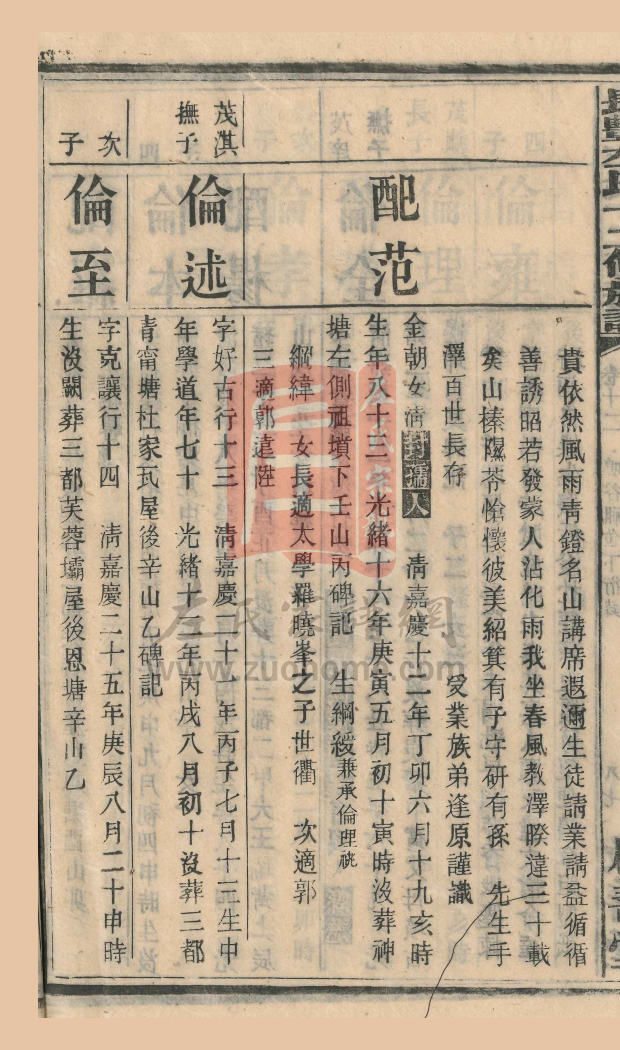 貴依然風雨青鐙名山講席遐邇生徒請業請益循循
善誘昭若發蒙人沾化雨我坐春風教澤睽違三十載
矣山榛隰苓愴懷彼美紹箕有子守研有孫 先生手
澤百世長存 受業族弟逢原謹識
配范
金朝女 清封孺人 清嘉慶十二年丁卯六月十九亥時
生年八十三 光緒十六年庚寅五月初十寅時沒葬神
塘左側祖墳下壬山丙碑記 生綱綬兼承倫理祧
綱緯 女長適太學羅曉峯之子世衢 次適郭
三適郭遠陞
茂淇
撫子
倫述
字好古行十三 清嘉慶二十一年丙子七月十三生中
年學道年七十 光緒十二年丙戌八月初十沒葬三都
青甯塘杜家瓦屋後辛山乙碑記
次
子
倫至
字克讓行十四 清嘉慶二十五年庚辰八月二十申時
生沒闕葬三都芙蓉壩屋後恩塘辛山乙
左氏宗譜網
www.zuohome.com